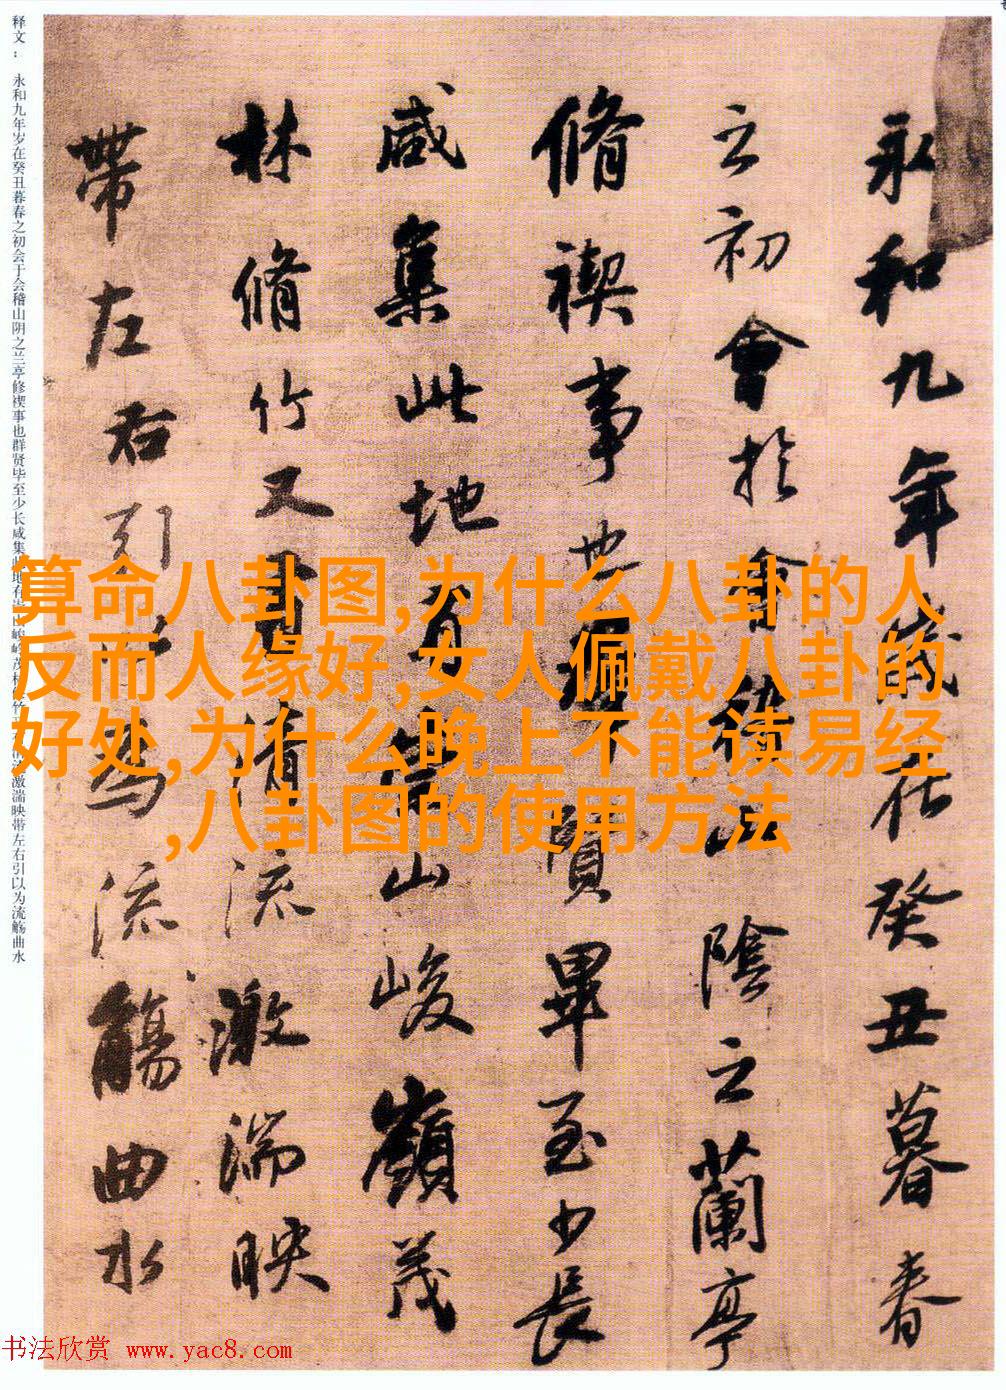 永和九年歲在癸丑暮春
之初會於會稽山陰之蘭亭
脩禊事也羣賢畢至少長
咸集此地有崇山峻嶺茂
林脩竹又有清流激湍映
帶左右引以為流觴曲水
释文：永和九年岁在癸丑暮春之初会于会稽山阴之兰亭修禊事也群贤毕至少长咸集此地有崇山峻岭茂林修竹又有清流激湍映带左右引以为流觞曲水
算命八卦图,为什么八卦的人
反而人缘好,女人佩戴八卦的
好处,为什么晚上不能读易经
,八卦图的使用方法
书法欣赏 www.yac8.com